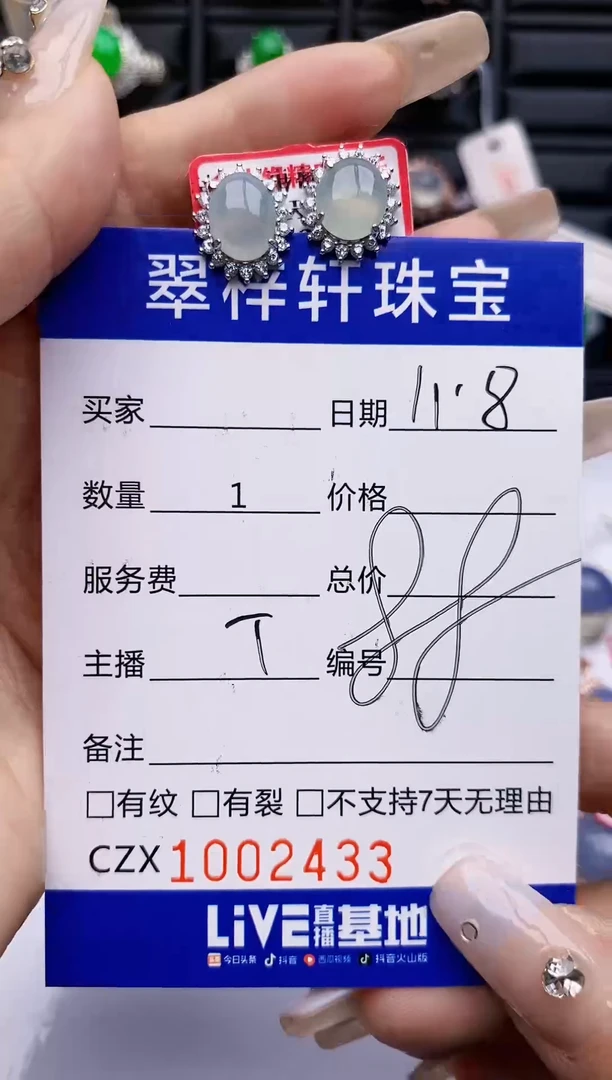 翠祥轩珠宝
买家 日期 11.8
数量 1 价格
服务费 总价
主播 T 编号
备注
□有纹 □有裂 □不支持7天无理由
CZX 1002433
LiVE直播基地
今日头条 抖音 西瓜视频 抖音火山版